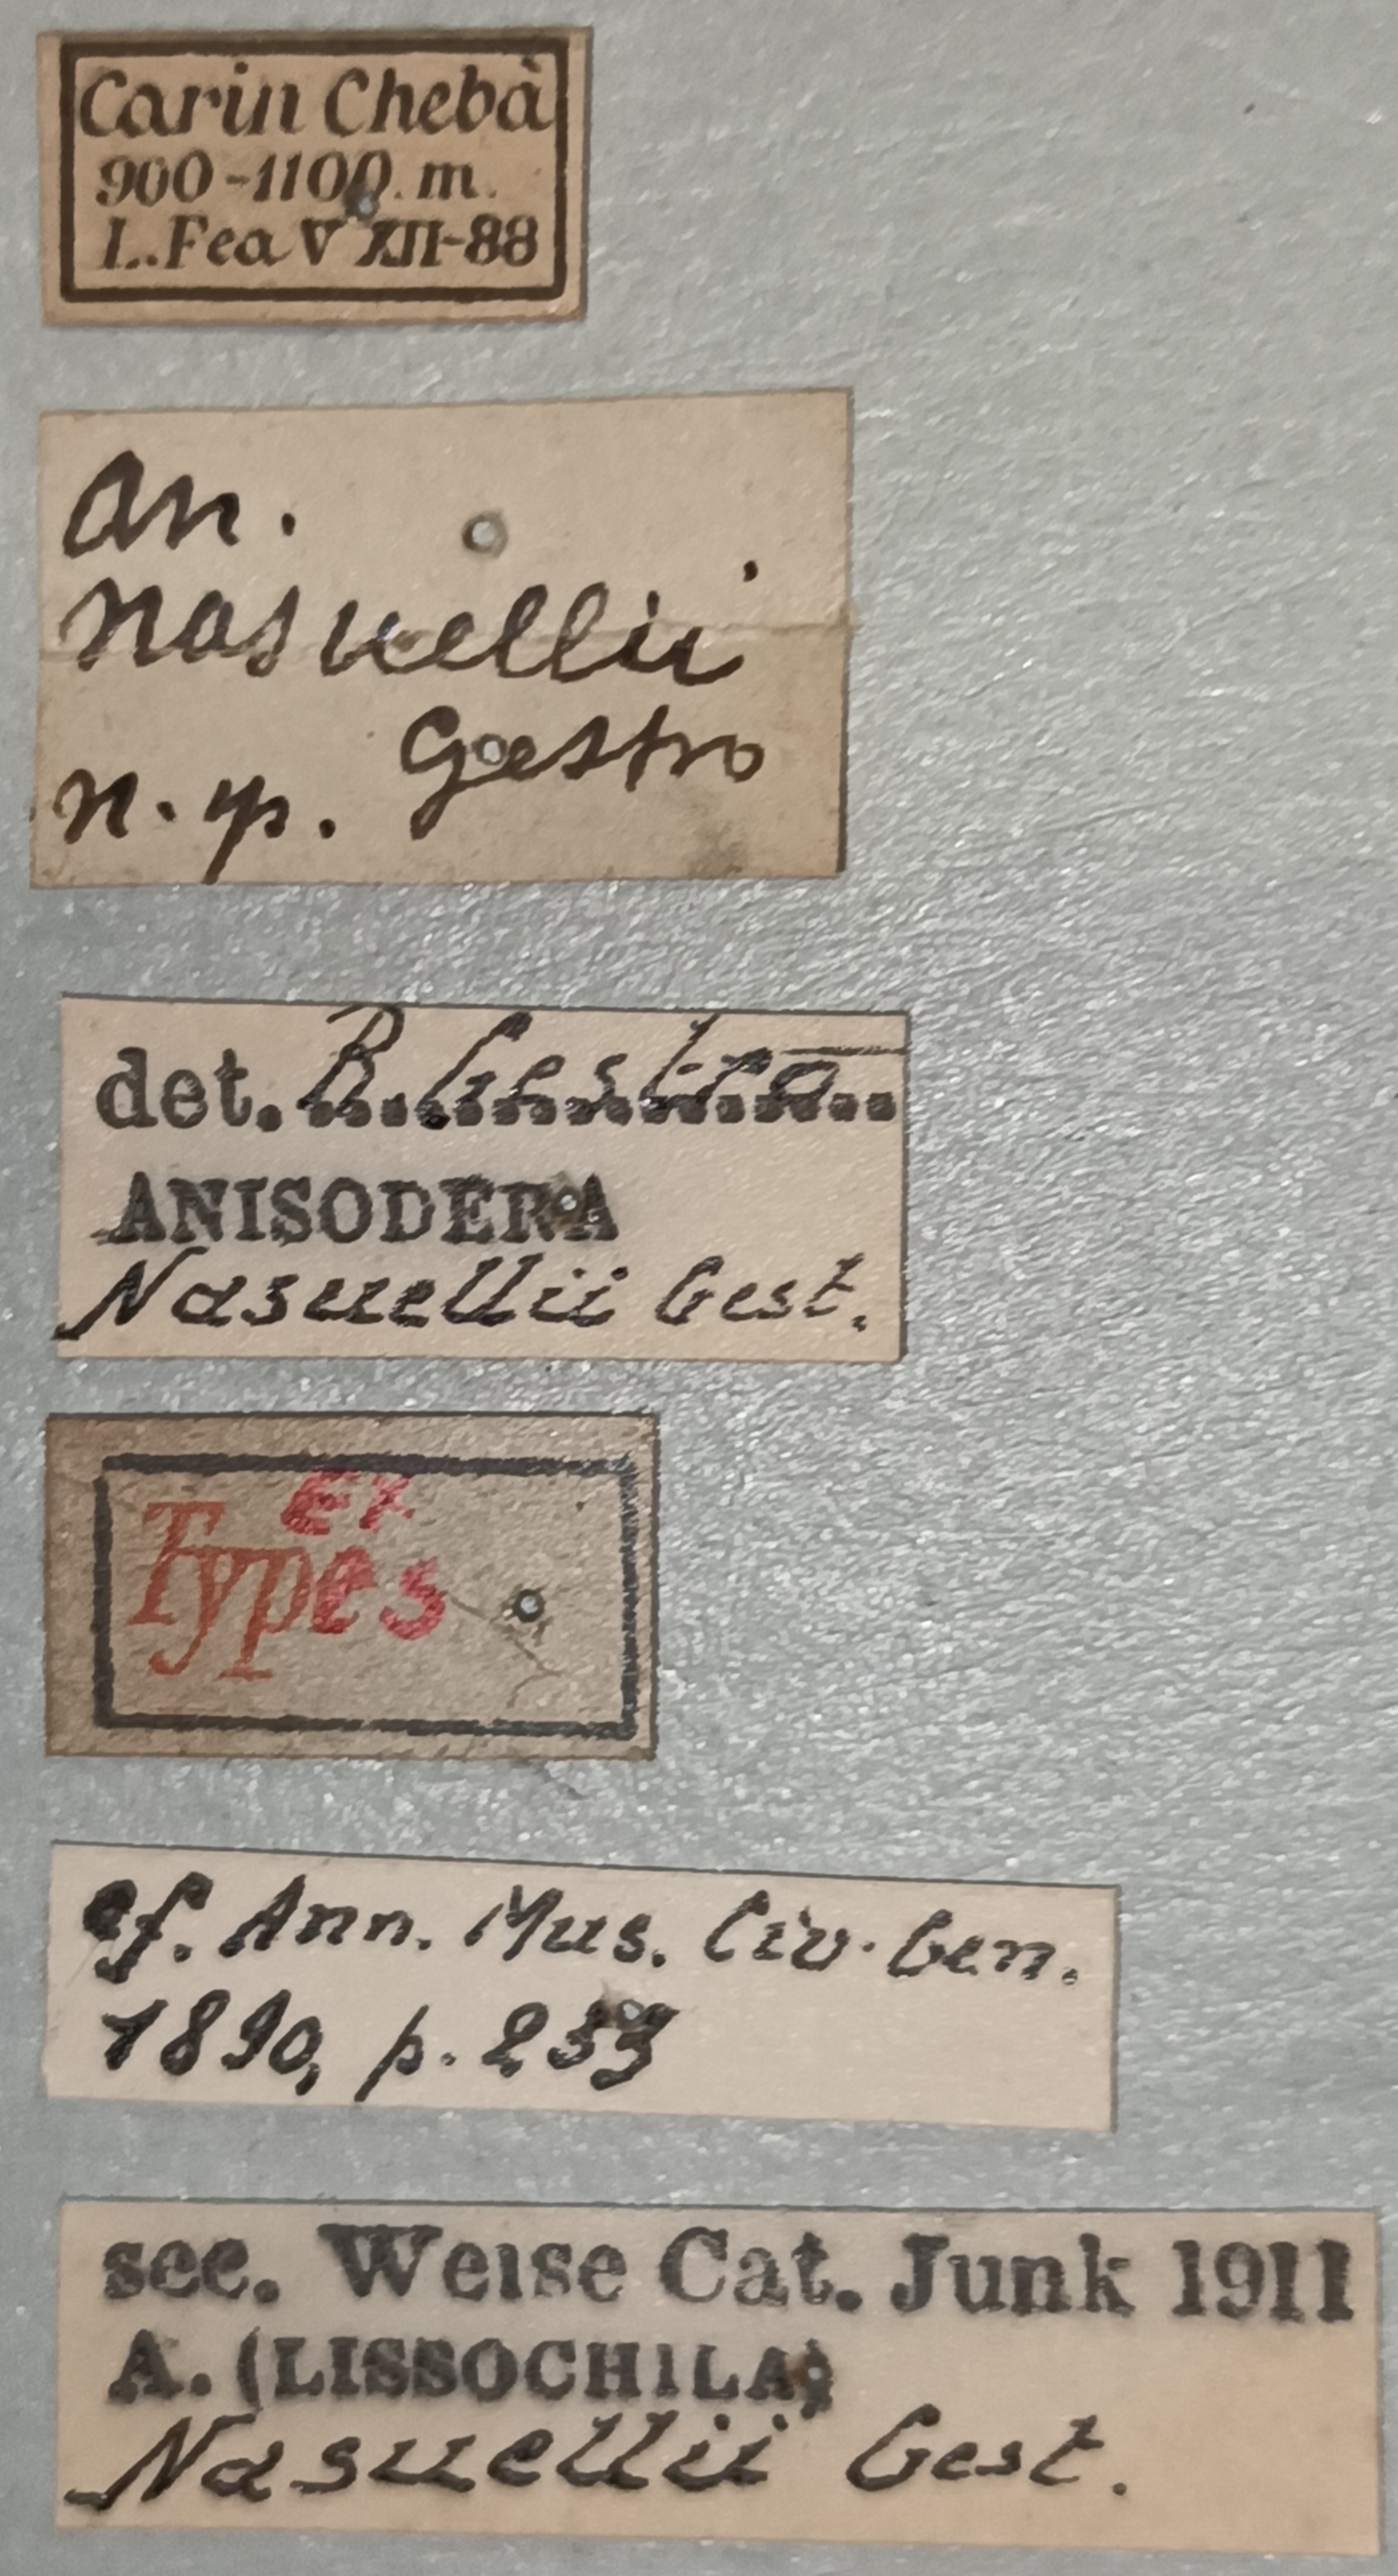 Carin Chebà
900-1100.m.
L.Fea V XII-88
An.
Nasuellii
Gestro
n. sp.
det. R. Gestro
ANISODERA
Nasuellii Gest.
Ex
Types
cf. Ann. Mus. Civ. Gen.
1890, p. 233
sec. Weise Cat. Junk 1911
A. (LISSOCHILA)
Nasuellii Gest.